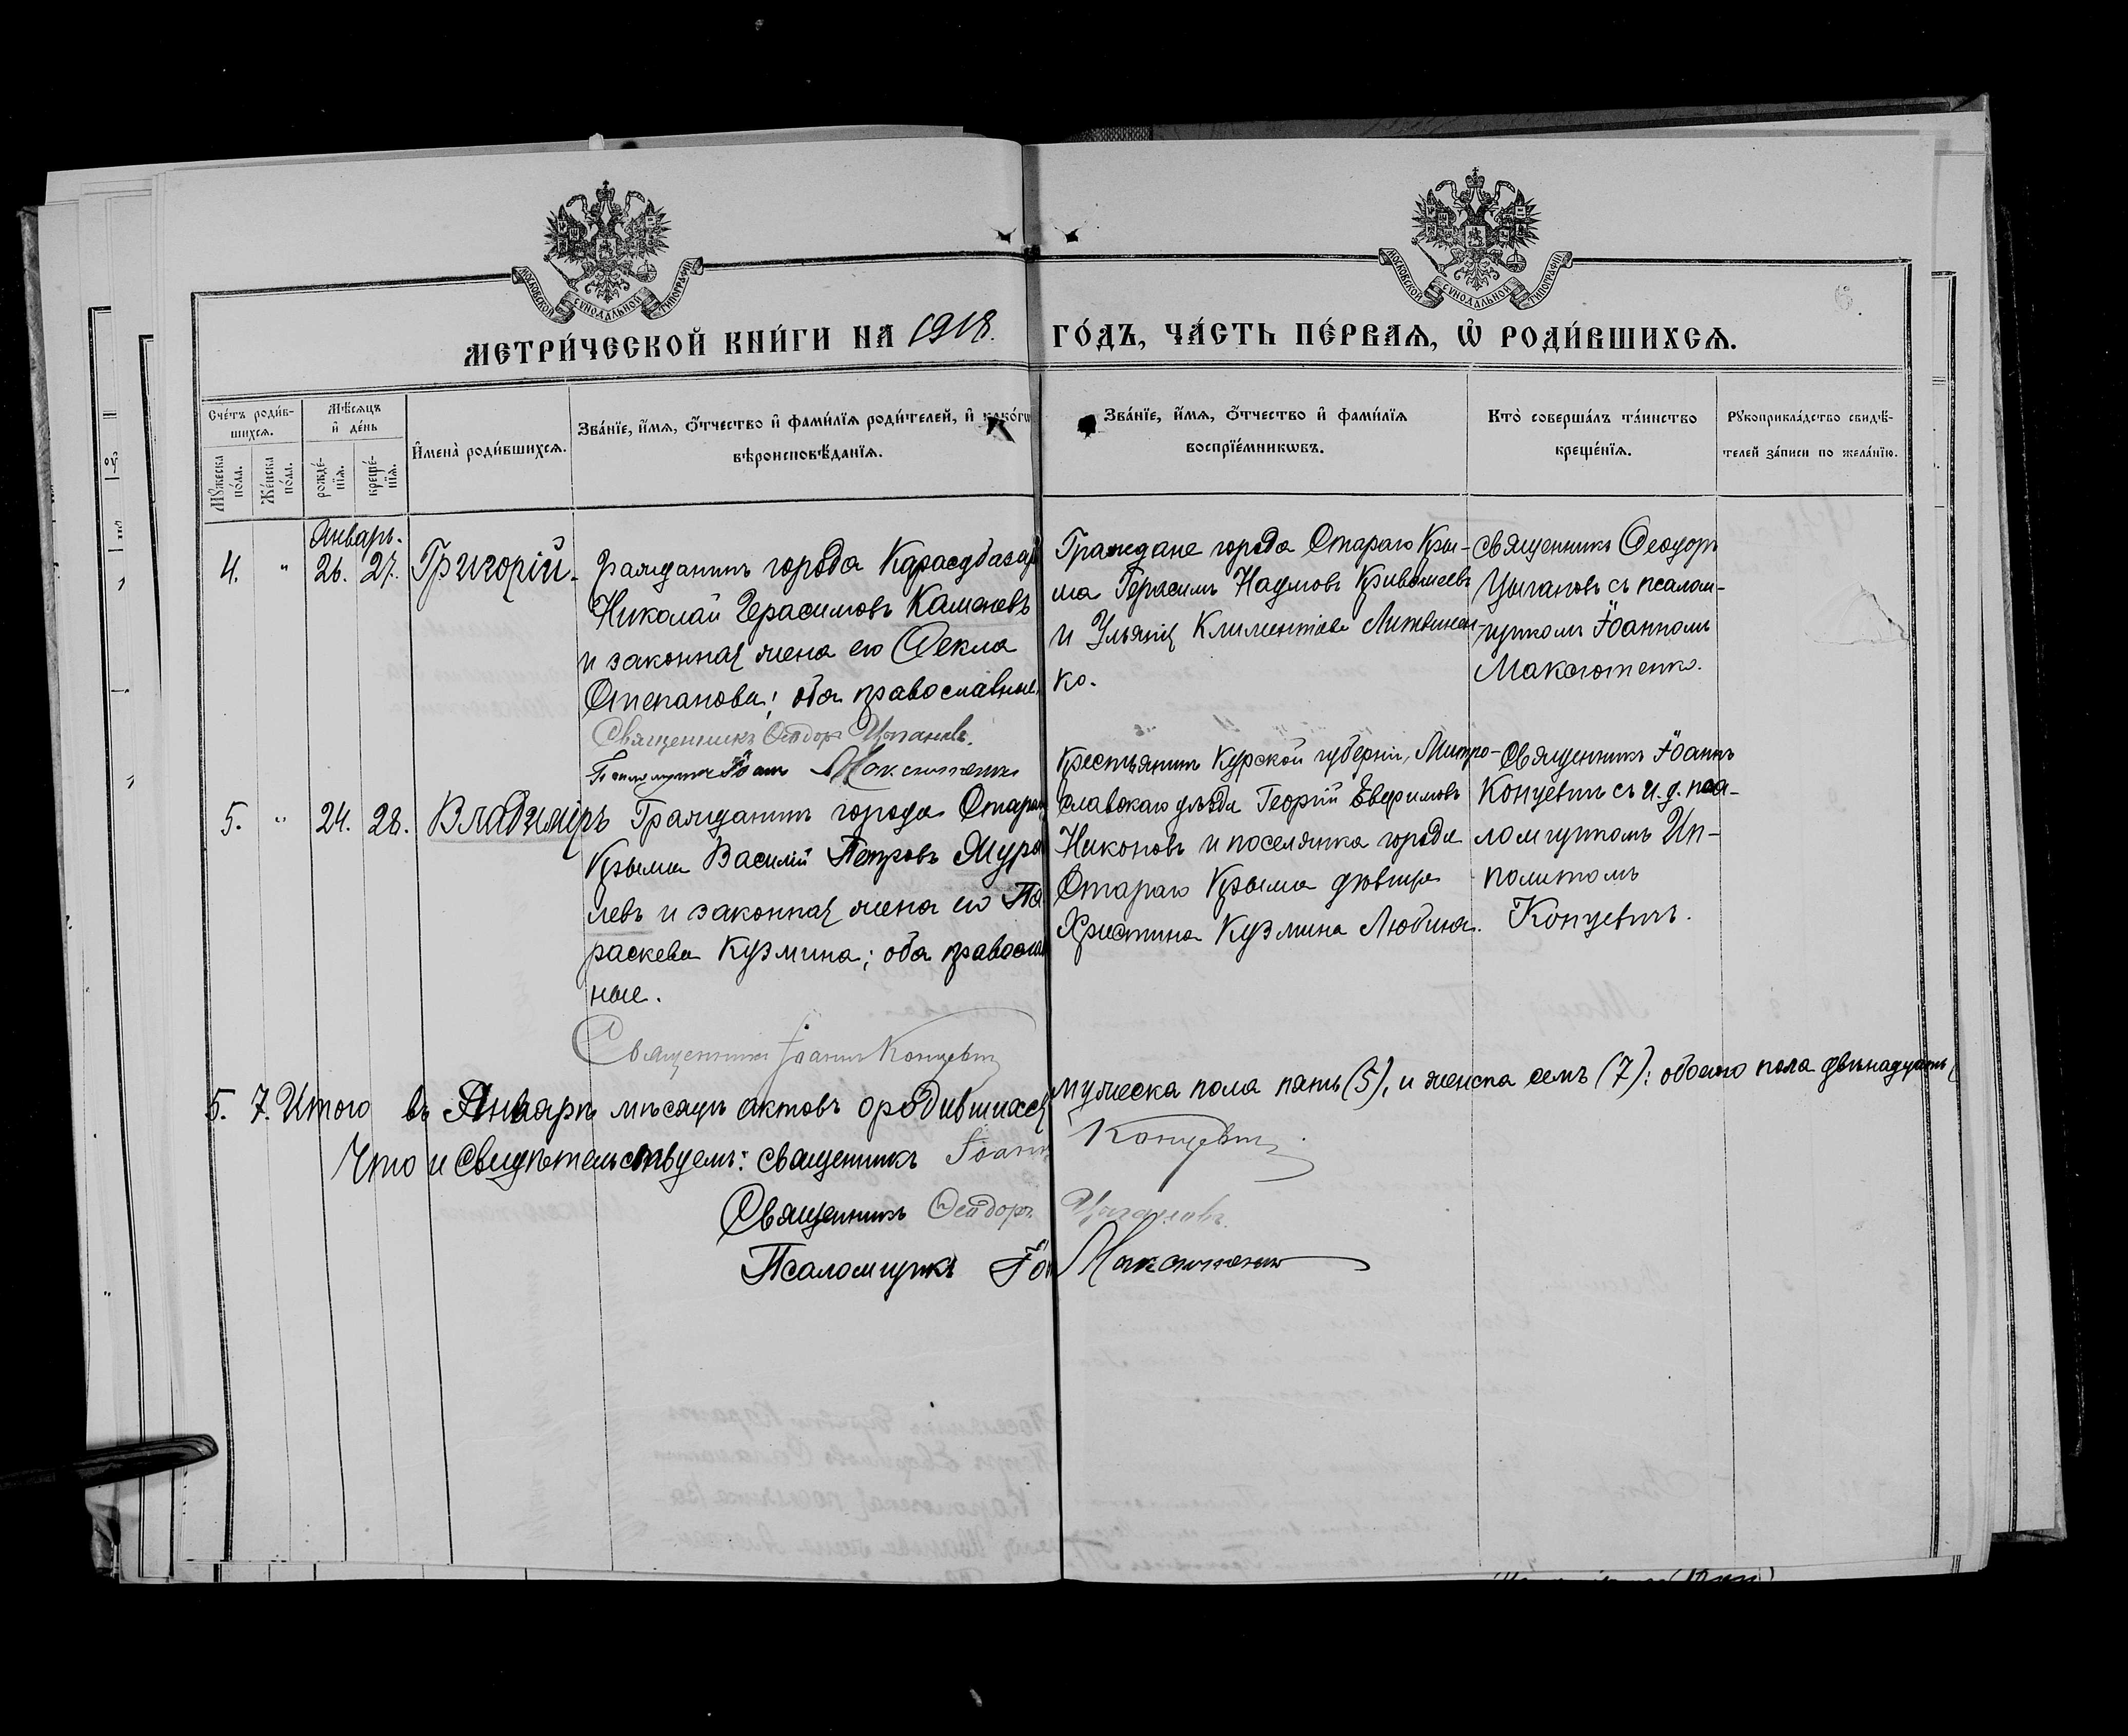 МОСКОВСКОЙ СѴНОДАЛЬНОЙ ТИПОГРАФІИ
МОСКОВСКОЙ СѴНОДАЛЬНОЙ ТИПОГРАФІИ
6.
МЕТРИ́ЧЕСКОЙ КНИ́ГИ НА 1918. ГО́ДЪ, ЧА́СТЬ ПЕ́РВАѦ, Ѡ҆ РОДИ́ВШИХСѦ.
Сче́тъ роди́в-
шихсѧ.
Мѣ́сѧцъ
и҆ де́нь
Мꙋ́жеска
по́ла.
Же́нска
по́ла.
рожде́-
нїѧ.
креще́-
нїѧ.
И҆мена̀ роди́вшихсѧ.
Зва́нїе, и҆́мѧ, ѻ҆́тчество и҆ фами́лїѧ роди́телей, и҆ како́гѡ
вѣроисповѣ́данїѧ.
Зва́нїе, и҆́мѧ, ѻ҆́тчество и҆ фами́лїѧ
воспрїе́мникѡвъ.
Кто̀ соверша́лъ та́инство
креще́нїѧ.
Рꙋкоприкла́дство свидѣ́-
телей за́писи по жела́нїю.
Январь.
4. " 26. 27. Григорій.
Гражданинъ города Карасубазар
Николай Герасимовъ Каменевъ
и законная жена его Ѳекла
Степанова; оба православные.
Священникъ Ѳеодоръ Цыгановъ.
Псаломщикъ Іоаннъ Максютенко
Граждане города Стараго Кры-
ма Герасимъ Наумовъ Кривошеевъ
и Ульянія Климентова Литвинен-
ко.
Священникъ Ѳеодоръ
Цыгановъ съ псалом-
щикомъ Іоанномъ
Максютенко.
5. " 24. 28. Владиміръ
Гражданинъ города Стараго
Крыма Василій Петровъ Мура
левъ и законная жена его Па
раскева Кузмина; оба православ
ные.
Священникъ Іоаннъ Концевичъ
Крестьянинъ Курской губерніи, Митро-
славскаго уѣзда Георгій Евфимовъ
Никоновъ и поселянка города
Стараго Крыма дѣвица
Христина Кузмина Любина.
Священникъ Іоаннъ
Концевичъ съ и. д. пса-
ломщикомъ Ип-
политомъ
Концевичъ.
5. 7. Итого въ Январѣ мѣсяцѣ актовъ о родившихся мужеска пола пять (5), и женска семь (7): обоего пола двѣнадцать
Что и свидѣтельствуемъ: священникъ Іоаннъ Концевичъ
Священникъ Ѳеодоръ Цыгановъ.
Псаломщикъ Іо Максютенко